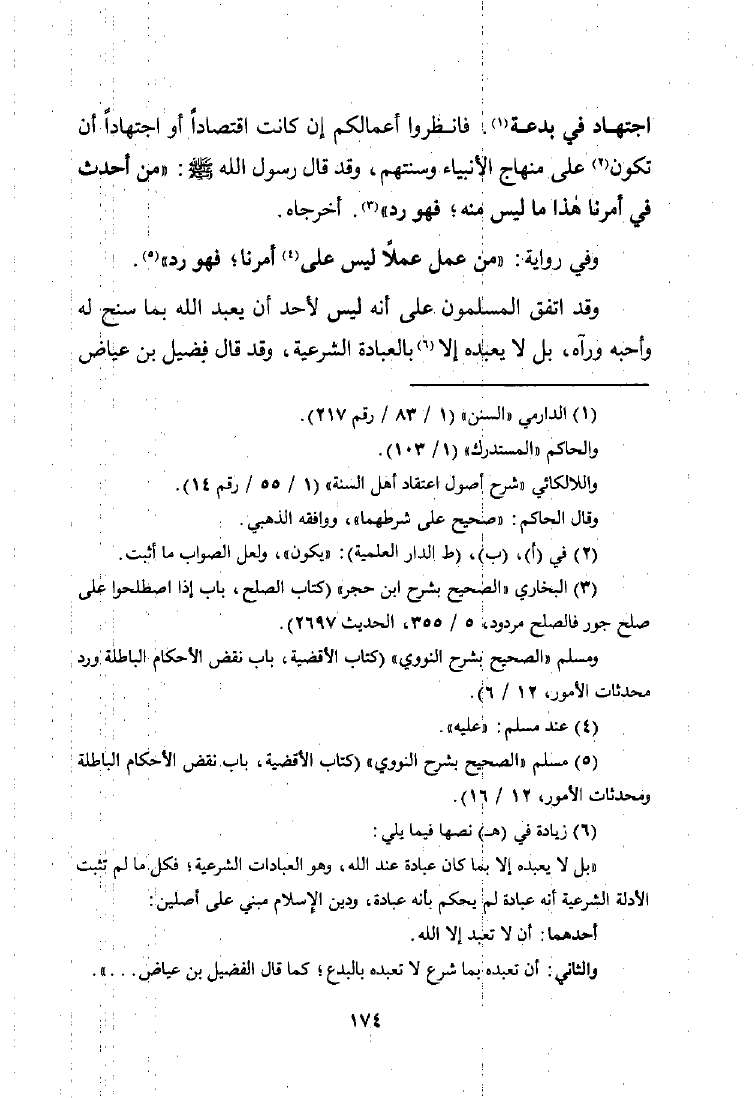 اجتهـاد في بدعـة(١). فانـظروا أعمالكم إن كانت اقتصاداً أو اجتهاداً أن
تكون(٢) على منهاج الأنبياء وسنتهم، وقد قال رسول الله ﷺ: «من أحدث
في أمرنا هٰذا ما ليس منه؛ فهو رد»(٣). أخرجاه.
وفي رواية: «من عمل عملاً ليس على(٤) أمرنا؛ فهو رد»(٥).
وقد اتفق المسلمون على أنه ليس لأحد أن يعبد الله بما سنح له
وأحبه ورآه، بل لا يعبده إلا(٦) بالعبادة الشرعية، وقد قال فضيل بن عياض
(١) الدارمي «السنن» (١ / ٨٣ / رقم ٢١٧).
والحاكم «المستدرك» (١/ ١٠٣).
واللالكائي «شرح أصول اعتقاد أهل السنة» (١ / ٥٥ / رقم ١٤).
وقال الحاكم: «صحيح على شرطهما»، ووافقه الذهبي.
(٢) في (أ)، (ب)، (ط الدار العلمية): «يكون»، ولعل الصواب ما أثبت.
(٣) البخاري «الصحيح بشرح ابن حجر» (كتاب الصلح، باب إذا اصطلحوا على
صلح جور فالصلح مردود، ٥ / ٣٥٥، الحديث ٢٦٩٧).
ومسلم «الصحيح بشرح النووي» (كتاب الأقضية، باب نقض الأحكام الباطلة ورد
محدثات الأمور، ١٢ / ٦).
(٤) عند مسلم: «عليه».
(٥) مسلم «الصحيح بشرح النووي» (كتاب الأقضية، باب نقض الأحكام الباطلة
ومحدثات الأمور، ١٢ / ١٦).
(٦) زيادة في (هـ) نصها فيما يلي:
«بل لا يعبده إلا بما كان عبادة عند الله، وهو العبادات الشرعية؛ فكل ما لم تثبت
الأدلة الشرعية أنه عبادة لم يحكم بأنه عبادة، ودين الإسلام مبني على أصلين:
أحدهما: أن لا تعبد إلا الله.
والثاني: أن تعبده بما شرع لا تعبده بالبدع؛ كما قال الفضيل بن عياض...».
١٧٤